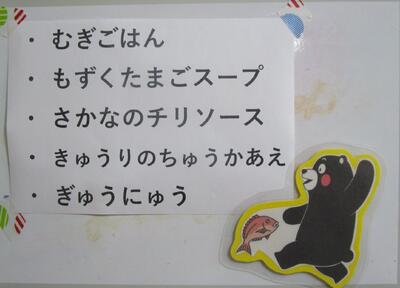 ・ むぎごはん
・ もずくたまごスープ
・ さかなのチリソース
・ きゅうりのちゅうかあえ
・ ぎゅうにゅう